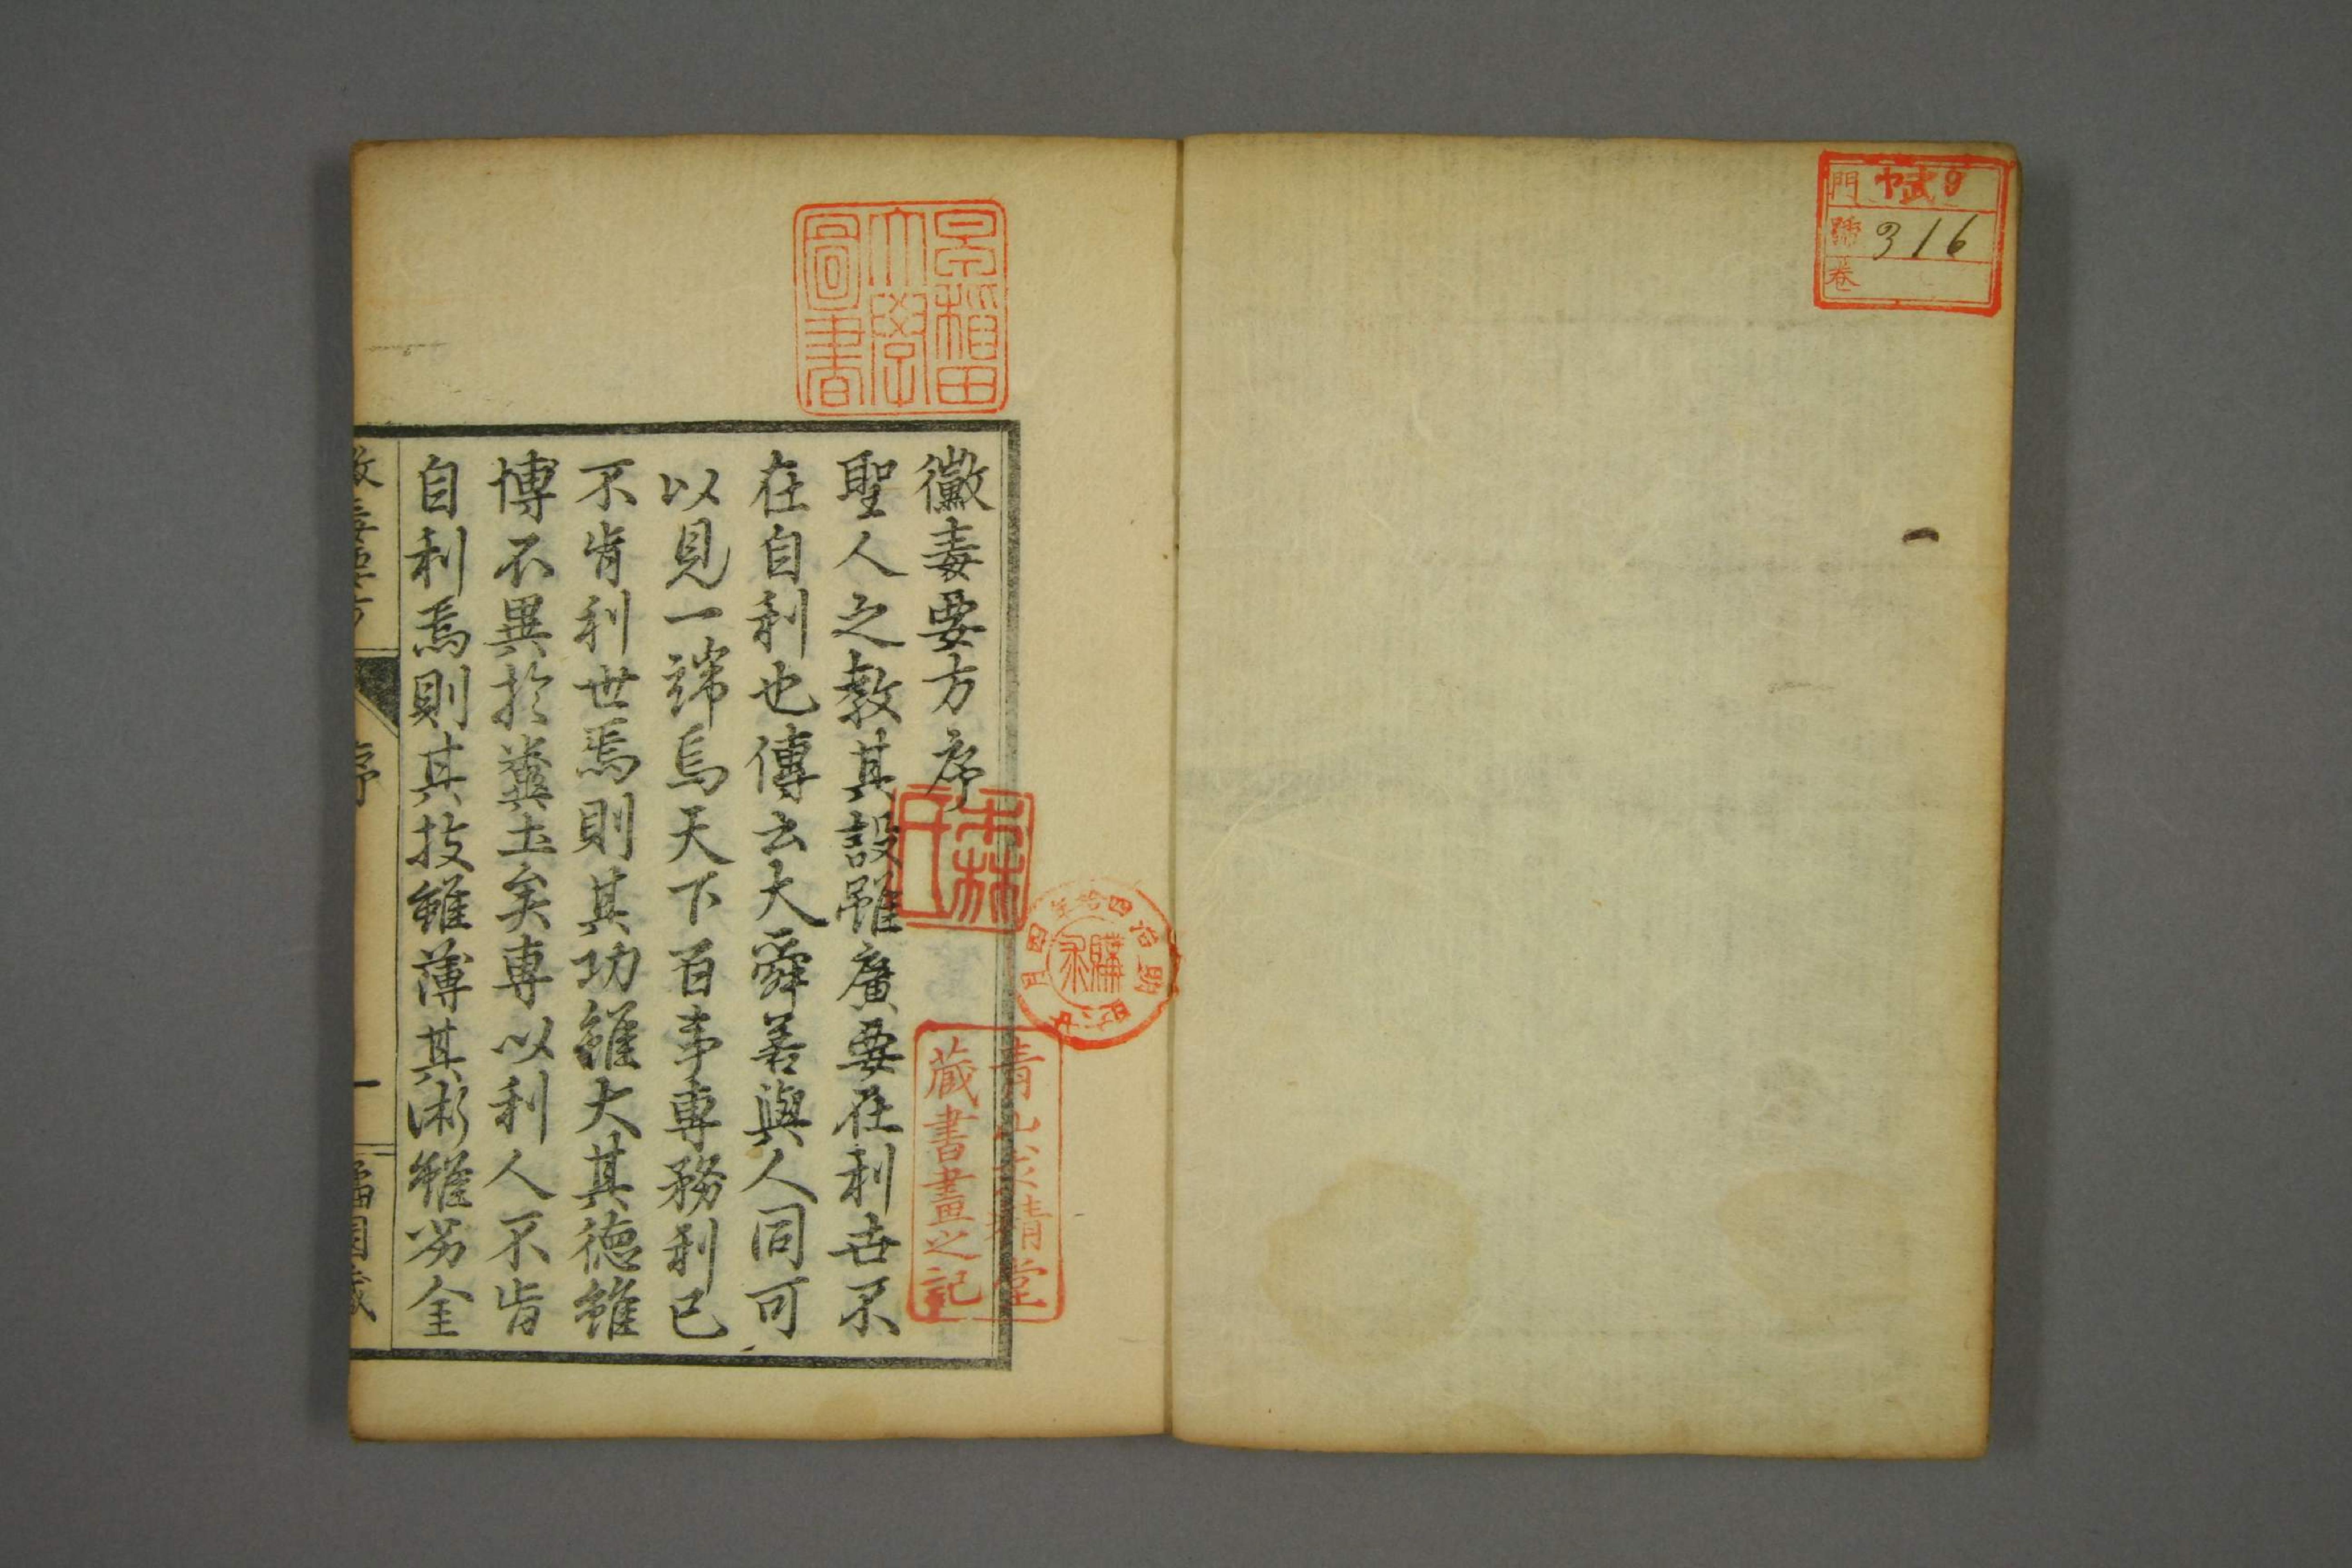 門 ヤ9
號 316
卷
早稲田
大學
圖書
黴毒要方序
聖人之教其設雖廣要在利世不
在自利也傳云大舜善與人同可
以見一端焉天下百事專務利已
不肯利世焉則其功雖大其德雖
博不異於糞土矣專以利人不肯
自利焉則其技雖薄其術雖劣全
森氏
購求
青山求精堂
藏書畫之記
黴毒要方
序
一